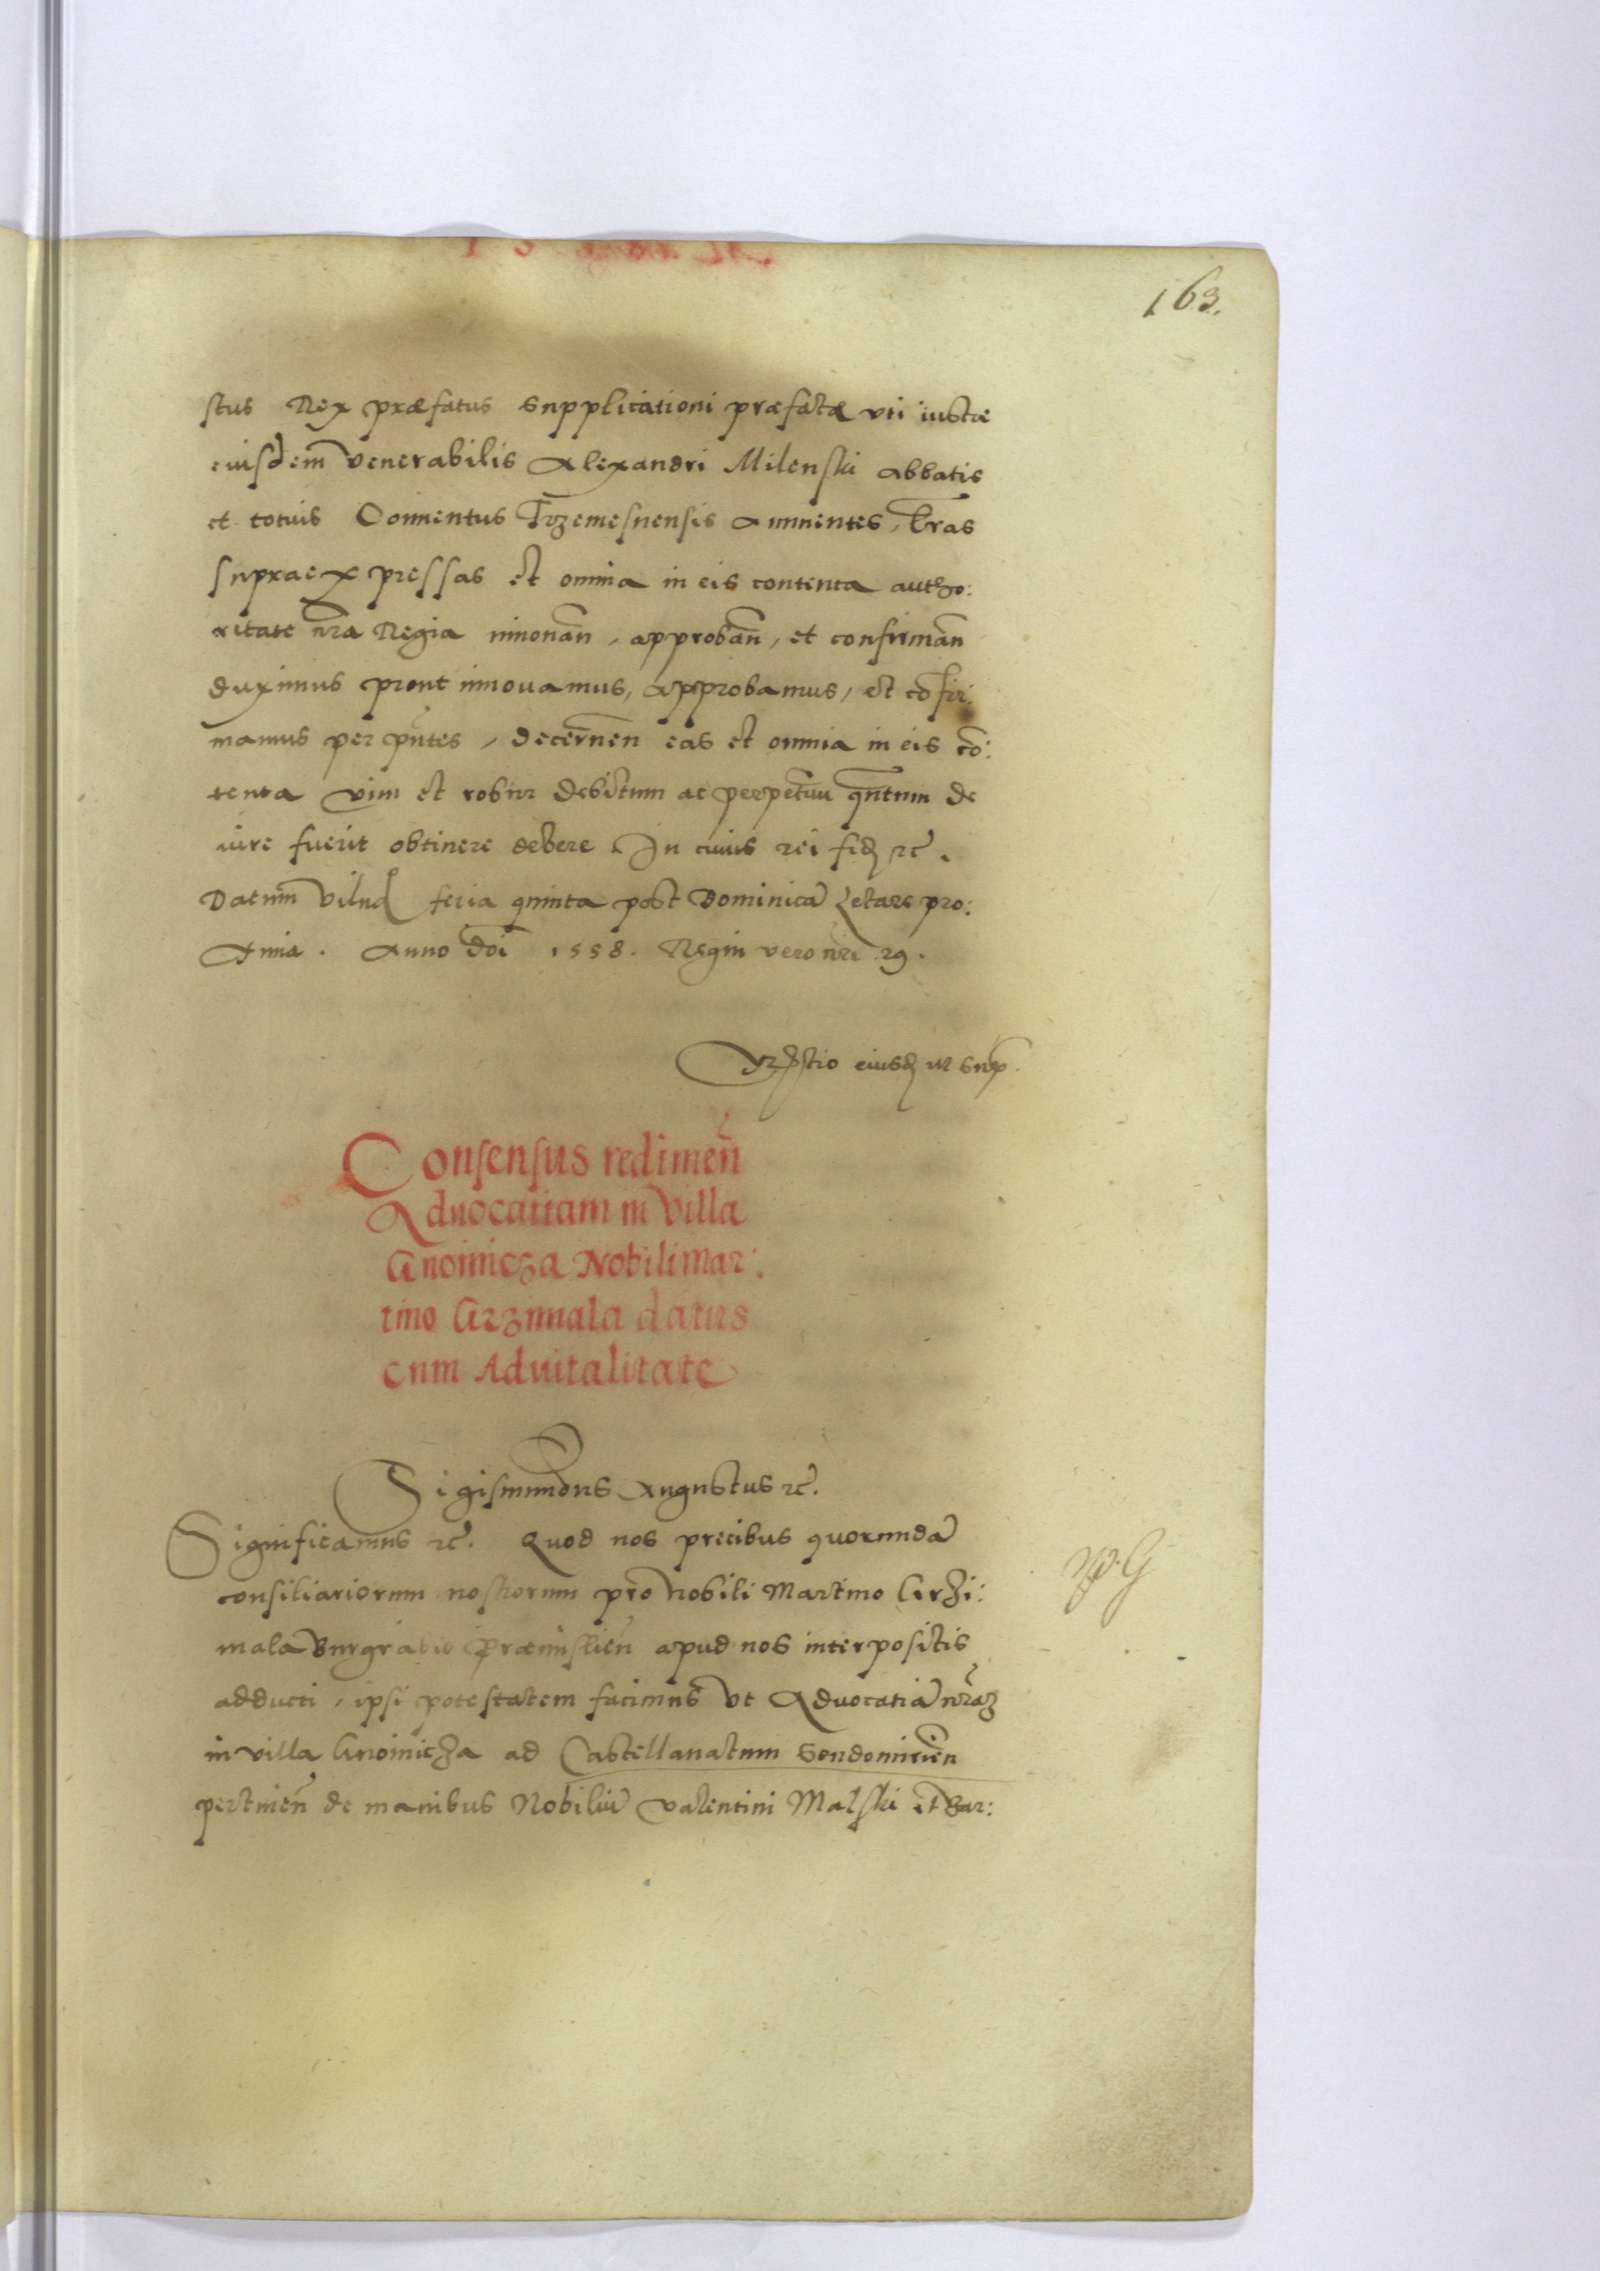 163.
stus Rex præfatus supplicationi præfatæ uti iustæ
eiusdem venerabilis Alexandri Milenski abbatis
et totius Conuentus Trzemesnensis annuentes, l̃ras
supraexpressas et omnia in eis contenta autho:
ritate nr̃a Regia innouan̄, approban̄, et confirman̄
duximus prout innouamus, approbamus, et cōfir:
mamus per pn̄tes, decernen̄ eas et omnia in eis cō:
tenta vim et robur debitum ac perpetuū qn̄tum de
iure fuerit obtinere debere. In cuius rei fidē rc̄.
Datum Vilnę feria quinta post Dominicā Lętare pro:
xima. Anno dn̄i 1558. Regni vero nr̄i 29.
eiusdē ut sup̄.
Consensus redimen̄
Aduocatiam in villa
Gnoinicza Nobili Mar:
tino Grzimala datus
cum Aduitalitate
Sigismundus Augustus rc̄.
Significamus rc̄. Quod nos precibus quorundā
consiliariorum nostrorum pro Nobili Martino Grzi:
mala Burgrabio Præmislien̄ apud nos interpositis
adducti, ipsi potestatem facimus ut Aduocatiā nr̄aʒ
in villa Gnoinicza ad Castellanatum Sendomirien̄
pertinen̄ de manibus Nobiliū Valentini Malski et Bar: